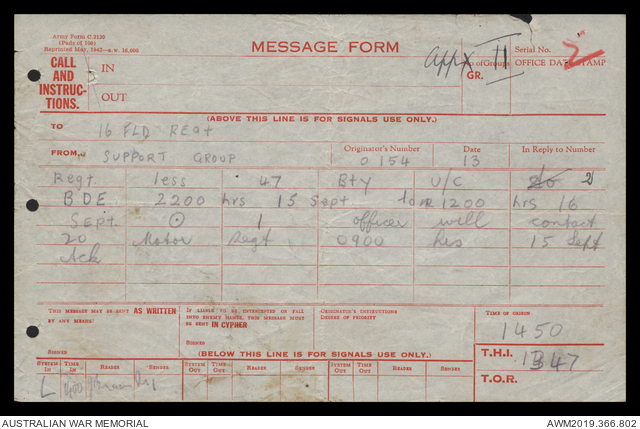 Army Form C.2128
(Pads of 100)
Reprinted May, 1942—s.w. 16,000
MESSAGE FORM
Appx II
Serial No. 2
CALL AND INSTRUC-TIONS.
IN
No of Groups GR.
OFFICE DATE STAMP
OUT
(ABOVE THIS LINE IS FOR SIGNALS USE ONLY.)
TO 16 FLD REGT
FROM. SUPPORT GROUP
Originator's Number 0154
Date 13
In Reply to Number
Regt. less 47 Bty U/C 2
BDE 2200 hrs 15 Sept 1200 hrs 16
Sept. ⊙ 1 officer will contact
20 Motor Regt 0900 hrs 15 Sept
Ack
THIS MESSAGE MAY BE SENT AS WRITTEN BY ANY MEANS.
SIGNED
IF LIABLE TO BE INTERCEPTED OR FALL INTO ENEMY HANDS, THIS MESSAGE MUST BE SENT IN CYPHER
SIGNED
ORIGINATOR'S INSTRUCTIONS DEGREE OF PRIORITY
TIME OF ORIGIN
1450
(BELOW THIS LINE IS FOR SIGNALS USE ONLY.)
T.H.I. 1347
SYSTEM IN TIME IN READER SENDER SYSTEM OUT TIME OUT READER SENDER SYSTEM OUT TIME OUT READER SENDER
T.O.R.
L
AUSTRALIAN WAR MEMORIAL
AWM2019.366.802